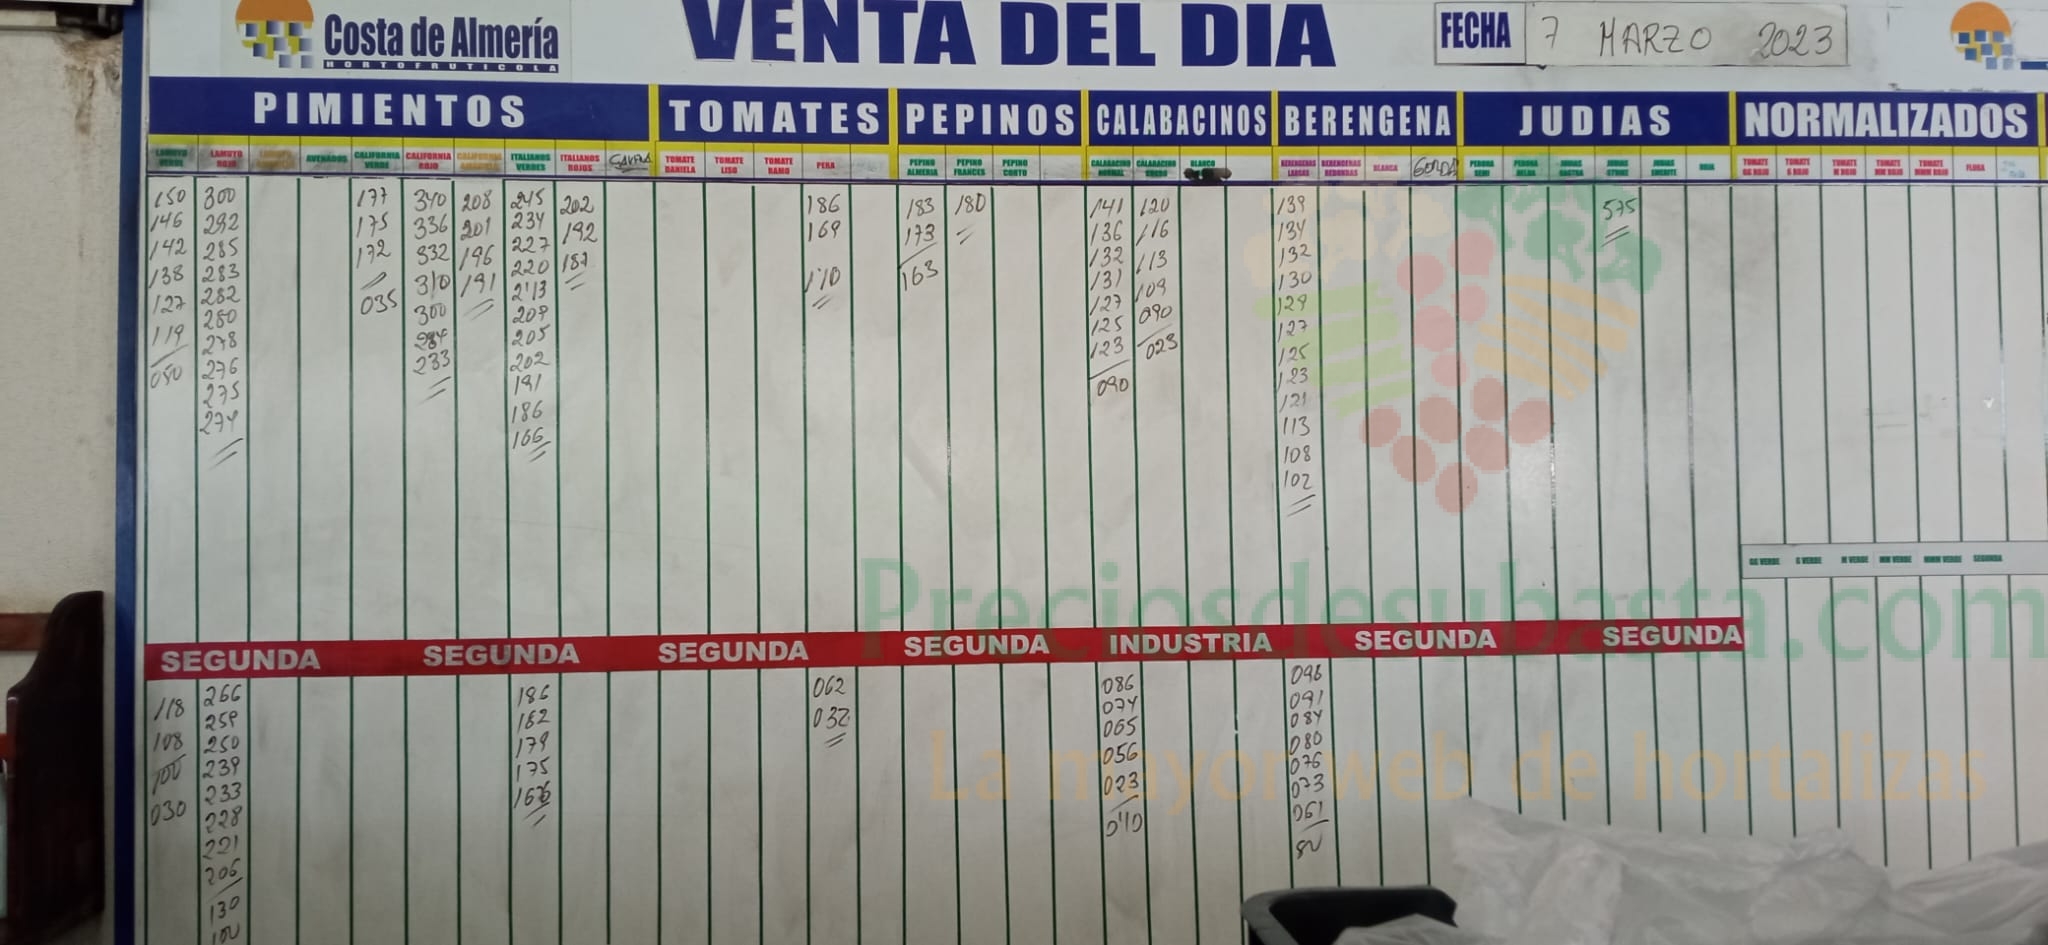 Costa de Almería
HORTOFRUTICOLA
VENTA DEL DIA
FECHA 7 MARZO 2023
PIMIENTOS TOMATES PEPINOS CALABACINOS BERENGENA JUDIAS NORMALIZADOS
LAMUYO VERDE LAMUYO ROJO AVENADOS CALIFORNIA VERDE CALIFORNIA ROJO CALIFORNIA AMARILLO ITALIANOS VERDES ITALIANOS ROJOS TOMATE DANIELA TOMATE LISO TOMATE RAMO PERA PEPINO ALMERIA PEPINO FRANCES PEPINO CORTO CALABACINO NORMAL CALABACINO GORDO BLANCO BERENGENAS LARGAS BERENGENAS REDONDAS BLANCA GORDA PERONA SEMI JUDIAS STRIKE ROJA TOMATE GG ROJO TOMATE G ROJO TOMATE M ROJO TOMATE MM ROJO TOMATE MMM ROJO FLORA
150 300 177 340 208 245 202 186 183 180 141 120 139 575
146 292 175 336 201 234 192 169 173 136 116 134
142 285 172 332 196 227 187 110 163 132 113 132
138 283 035 310 191 220 131 109 130
127 282 300 2'13 127 090 129
119 280 284 209 125 023 127
050 278 233 205 123 125
276 202 090 123
275 191 121
274 186 113
166 108
102
GG VERDE G VERDE M VERDE MM VERDE MMM VERDE SEGUNDA
Preciosdesubasta.com
SEGUNDA SEGUNDA SEGUNDA SEGUNDA INDUSTRIA SEGUNDA SEGUNDA
118 266 186 062 086 096
108 259 182 032 074 091
100 250 179 065 084
030 239 175 056 080
233 166 023 076
228 0'10 073
221 061
206
130
100
La mayor web de hortalizas